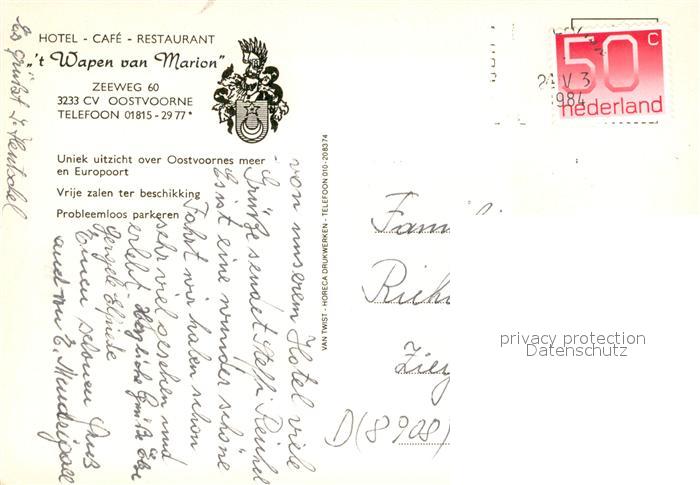 HOTEL - CAFÉ - RESTAURANT
„'t Wapen van Marion"
ZEEWEG 60
3233 CV OOSTVOORNE
TELEFOON 01815 - 29 77 *
Uniek uitzicht over Oostvoornes meer
en Europoort
Vrije zalen ter beschikking
Probleemloos parkeren
VAN TWIST - HORECA DRUKWERKEN - TELEFOON 010-208374
50 c
nederland
24 V 3
1984
von unserem Hotel viele
Grüße sendet Steffi Reichel
Es ist eine wunder schöne
Fahrt wir haben schon
sehr viel gesehen und
erlebt Herzliche Grüße
Einen schönen Gruß
auch von E.
Es grüßt
Fami
Rich
Zieg
D(8908)
privacy protection
Datenschutz